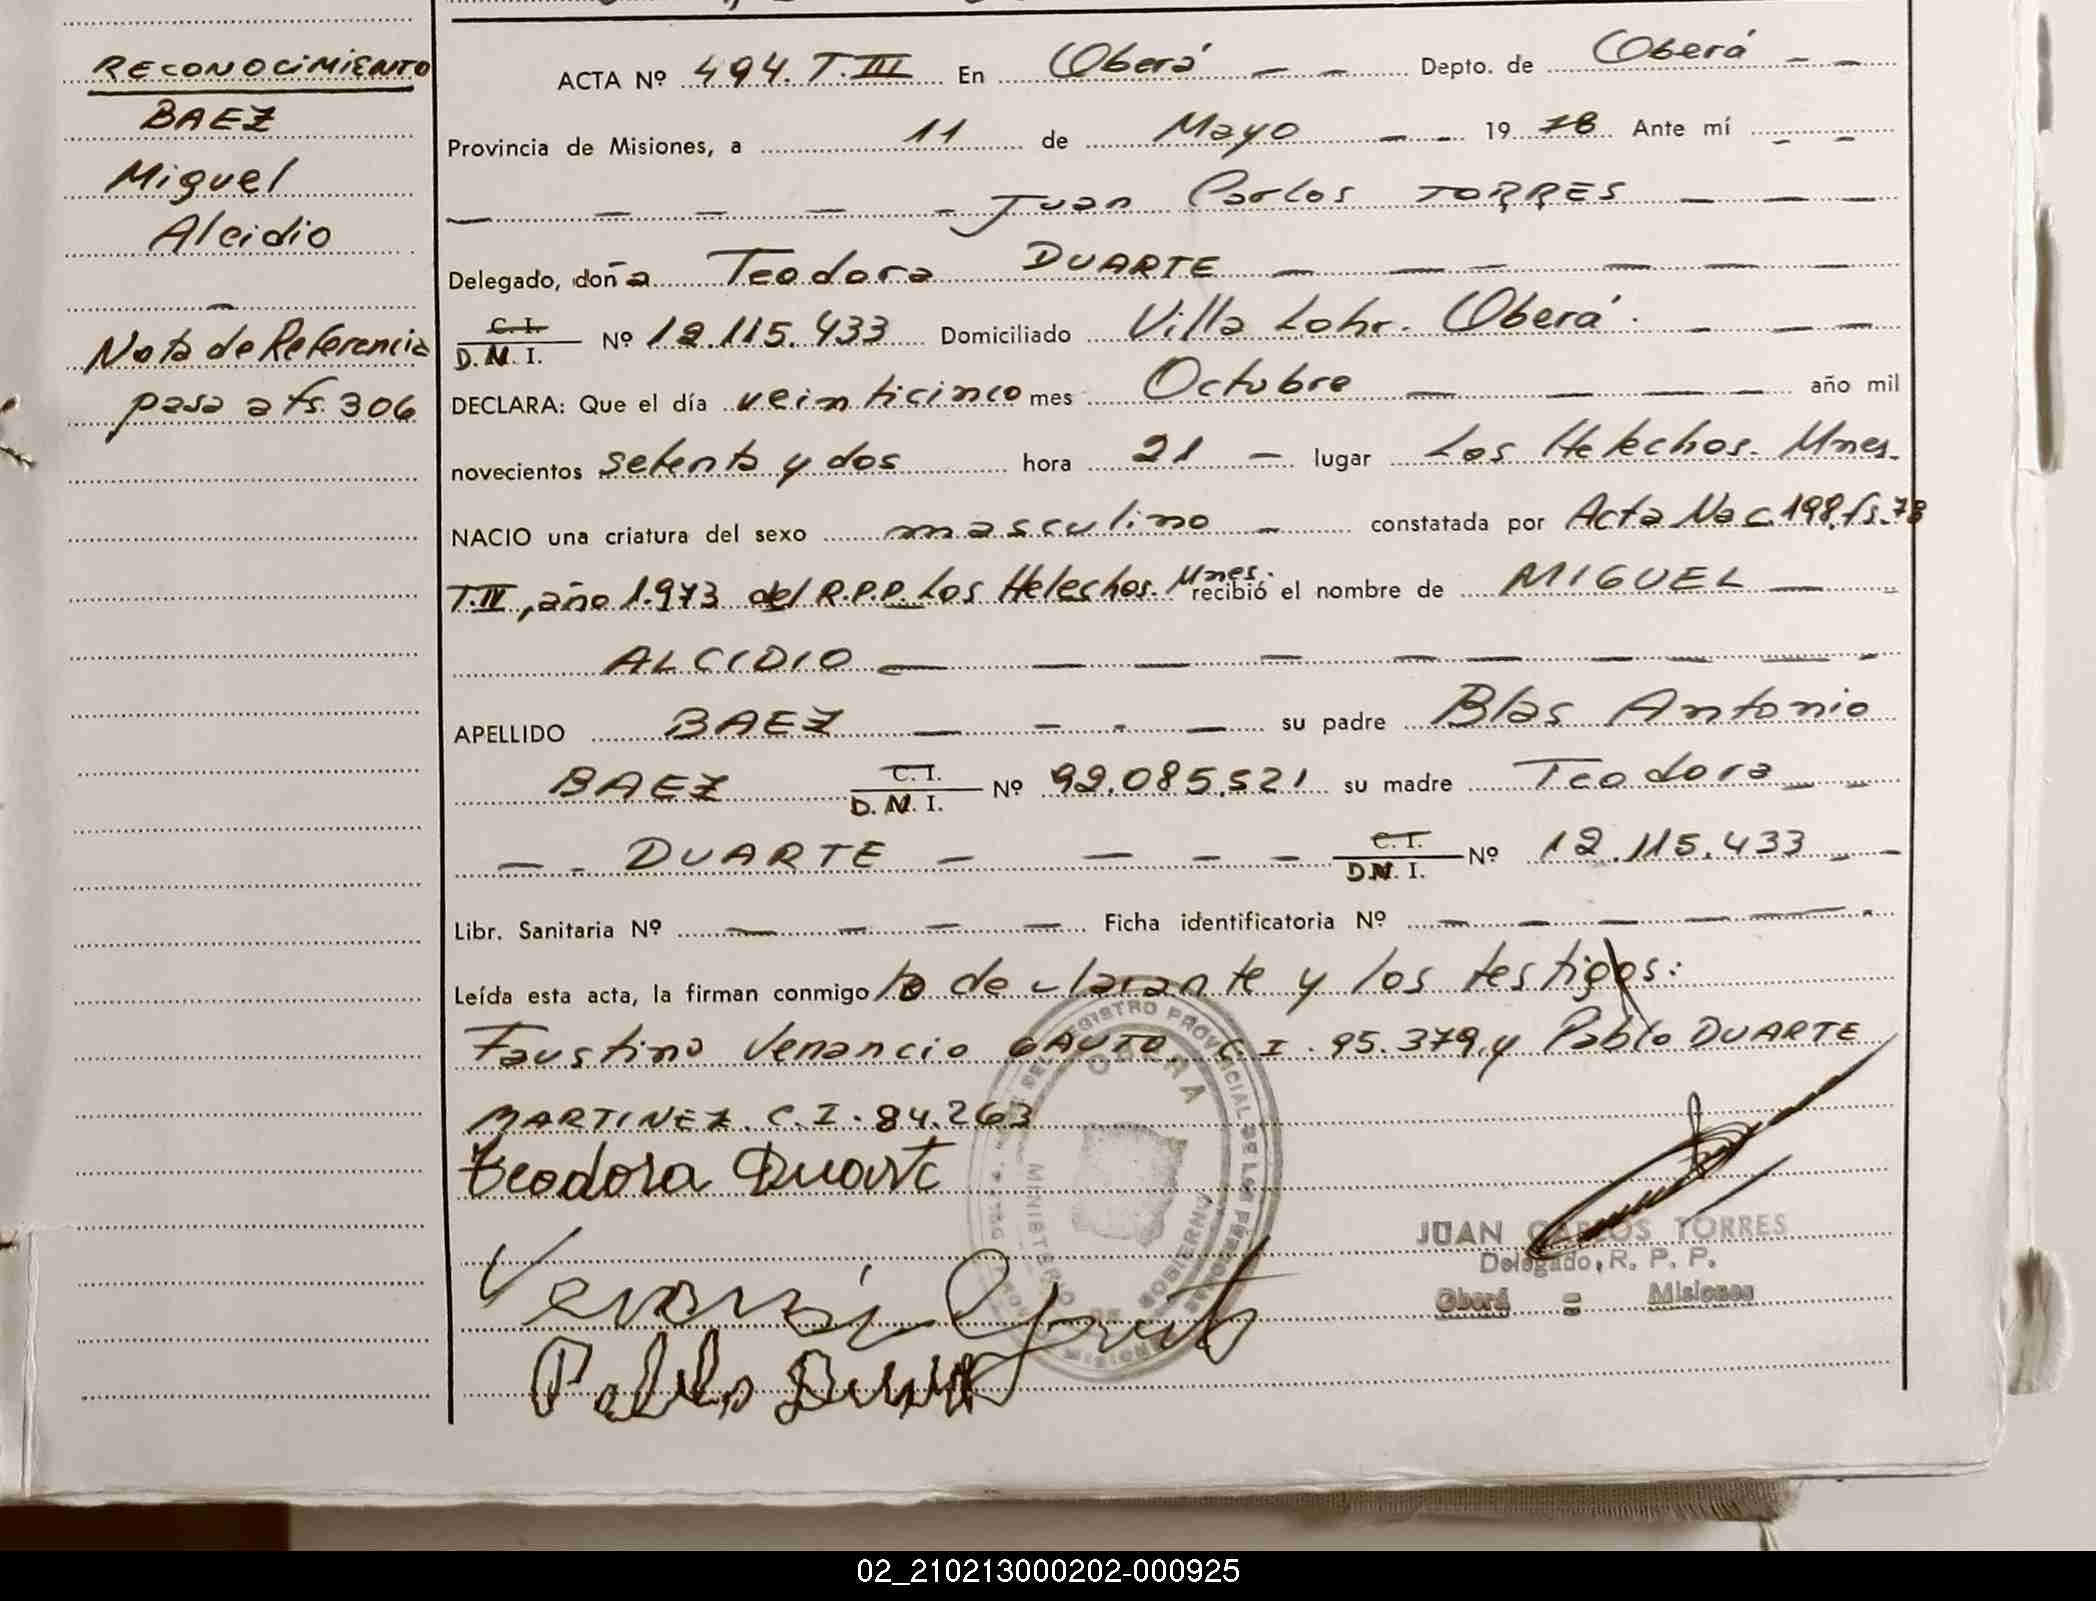 RECONOCIMIENTO
BAEZ
Miguel
Alcidio
Nota de Referencia
pasa a fs. 306
ACTA Nº 494. T. III En Oberá Depto. de Oberá
Provincia de Misiones, a 11 de Mayo 1978 Ante mí
Juan Carlos TORRES
Delegado, doña Teodora DUARTE
C. I.
D. N. I. Nº 12.115.433 Domiciliado Villa Lohr. Oberá.
DECLARA: Que el día veinticinco mes Octubre año mil
novecientos setenta y dos hora 21 lugar Los Helechos. Mnes.
NACIO una criatura del sexo masculino constatada por Acta Nac. 198. fs. 78
T. IV, año 1.973 del R.P.P. Los Helechos. Mnes. recibió el nombre de MIGUEL
ALCIDIO
APELLIDO BAEZ su padre Blas Antonio
BAEZ C. I. D. N. I. Nº 92.085.521 su madre Teodora
DUARTE C. I. D. N. I. Nº 12.115.433
Libr. Sanitaria Nº Ficha identificatoria Nº
Leída esta acta, la firman conmigo la declarante y los testigos:
Faustino Venancio GAUTO. C. I. 95.379, y Pablo DUARTE
MARTINEZ. C. I. 84.263
Teodora Duarte
Pablo Duarte
REGISTRO PROVINCIAL DE LAS PERSONAS
OBERA
MINISTERIO DE GOBIERNO
JUAN CARLOS TORRES
Delegado, R. P. P.
Oberá = Misiones
02_210213000202-000925